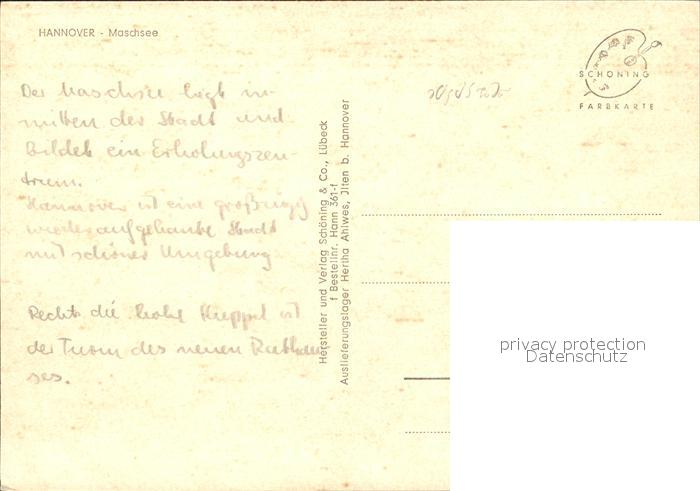 HANNOVER - Maschsee
SCHÖNING
FARBKARTE
Der Maschsee liegt in-
mitten der Stadt und
bildet ein Erholungszen-
trum.
Hannover ist eine großzügig
wiederaufgebaute Stadt
mit schöner Umgebung.
Rechts die hohe Kuppel ist
der Turm des neuen Rathau-
ses.
Hersteller und Verlag Schöning & Co., Lübeck
f Bestellnr. Hann 361-f
Auslieferungslager Hertha Ahlwes, Ilten b. Hannover
privacy protection
Datenschutz